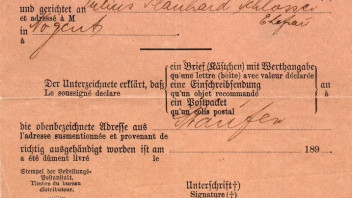 und gerichtet an Julius
et adressé à M
in Nogent
à
ein Brief (Kästchen) mit Werthangabe
qu'une lettre (boîte) avec valeur déclarée
Der Unterzeichnete erklärt, daß eine Einschreibsendung an
Le soussigné declare qu'un objet recommandé à
ein Postpacket
qu'un colis postal
die obenbezeichnete Adresse aus
l'adresse susmentionnée et provenant de
richtig ausgehändigt worden ist am 189
a été dûment livré le
Stempel der Bestellungs-
Postanstalt.
Timbre du bureau
distributeur.
Unterschrift†)
Signature†)